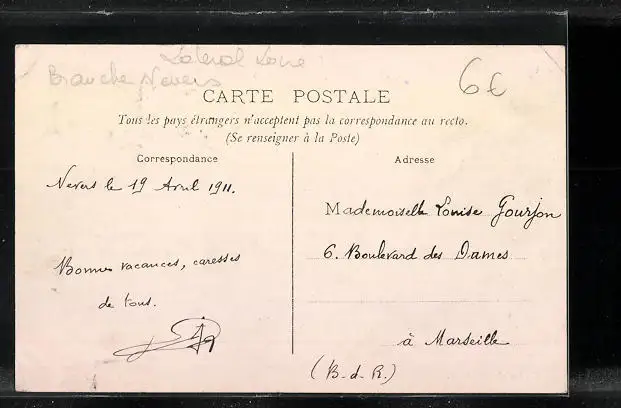 Lateral Loire
Branche Nevers
6€
CARTE POSTALE
Tous les pays étrangers n'acceptent pas la correspondance au recto.
(Se renseigner à la Poste)
Correspondance
Nevers le 19 Avril 1911.
Bonnes vacances, caresses
de tous.
Adresse
Mademoiselle Louise Gourjon
6. Boulevard des Dames
à Marseille
(B-d-R.)